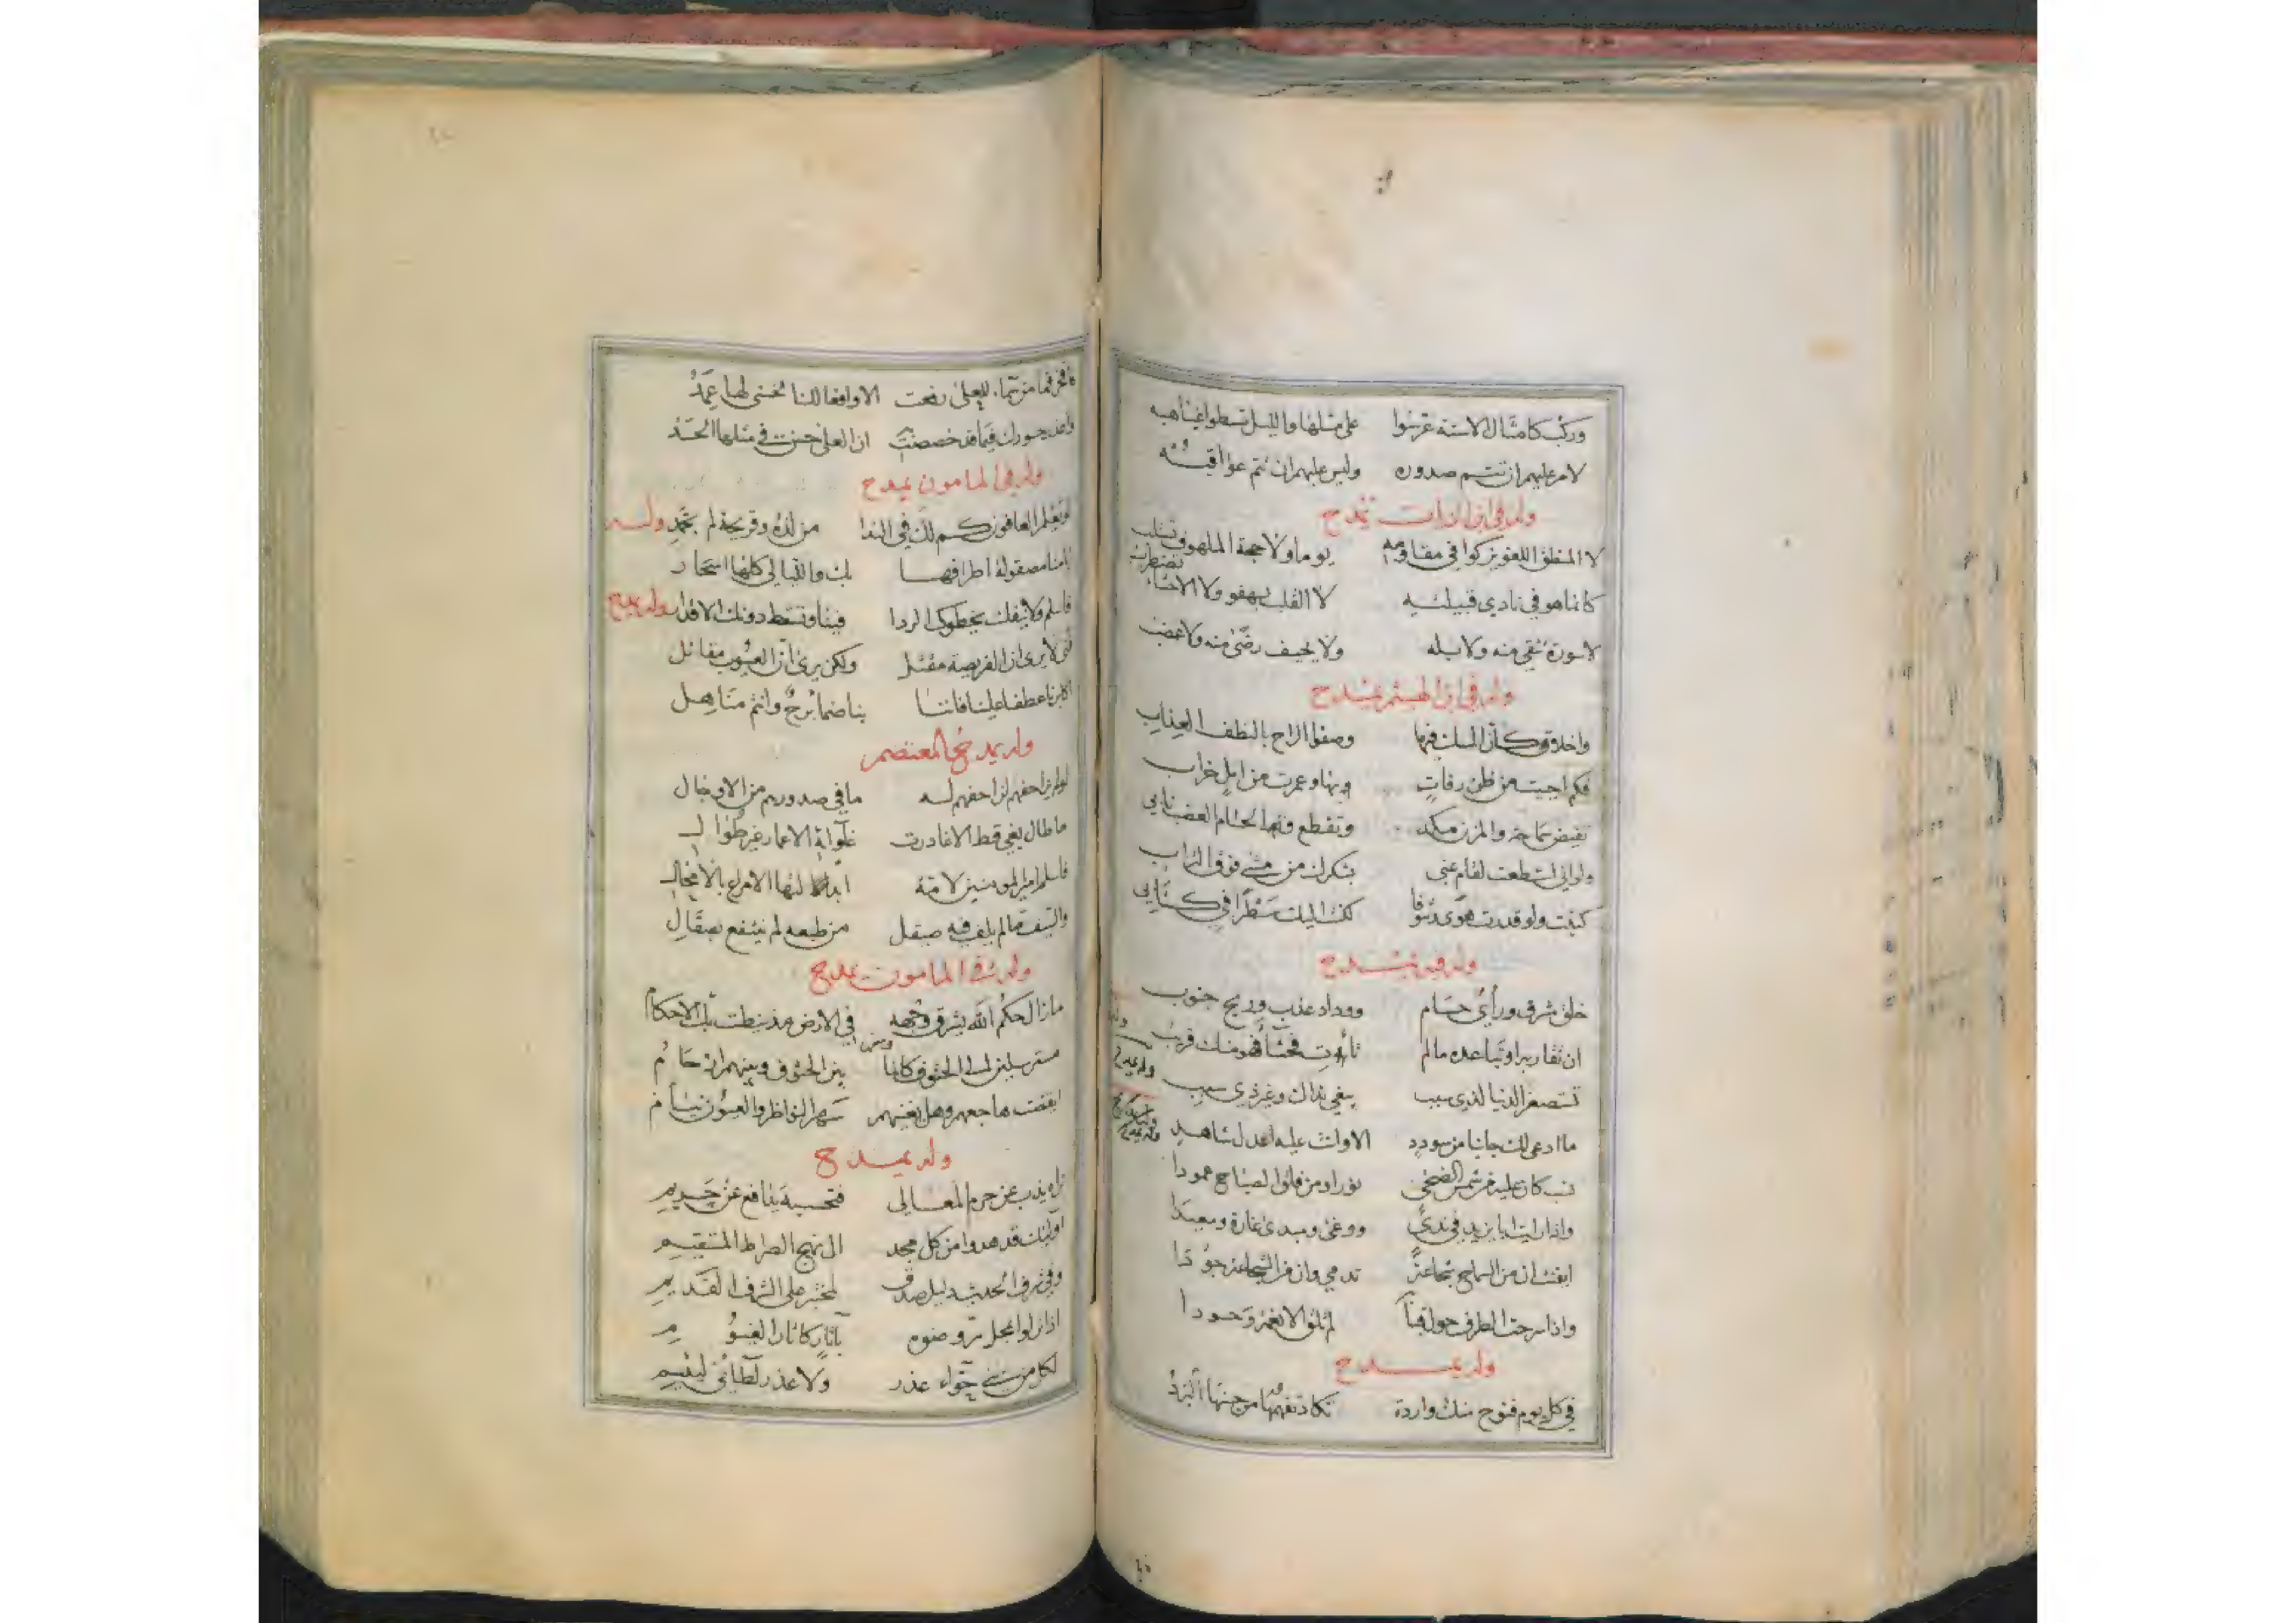 وركب كامثال الاسنة عرسوا على مثلها والليل تسطو غياهبه
لامر عليهم ان تتم صدوره وليس عليهم ان تتم عواقبه
وله في ابن الزيات يمدح
لا المنطق اللغو يزكوا في مقاومه يوما ولا حجة الملهوف تستلب
كانما هو في نادي قبيلته لا القلب يهفو ولا الاحشاء تضطرب
لا سورة تتقى منه ولا بله ولا يحيف رضى منه ولا غضب
وله في ابن الهيثم يمدح
واخلاق كأن المسك فيها وصفو الراح بالنطف العذاب
فكم احييت من ظن رفات بها وعمرت من امل خراب
تفيض سماحة والمزن مكد وتقطع والحسام العضب نابي
ولو اني استطعت لقام عني بشكرك من مشى فوق التراب
كتبت ولو قدرت هوى وشوقا لكنت اليك سطرا في كتابي
وله فيه يمدح
خلق مشرق ورأي حسام ووداد عذب وريح جنوب
ان تقاربه او تباعده ما لم تأت فحشا فهو منك قريب
تستصغر الدنيا لذي سبب يبغي نداك وغير ذي سبب
ما ادعى لك جانبا من سودد الا وانت عليه اعدل شاهد
نسب كان عليه من شمس الضحى نورا ومن فلق الصباح عمودا
واذا رايت ابا يزيد في ندى ووغى ومبدئ غارة ومعيدا
ايقنت ان من السماح شجاعة تدمي وان من الشجاعة جودا
واذا سرحت الطرف حول قبابه لم تلق الا نعمة وحسودا
وله يمدح
في كل يوم فتوح منك واردة تكاد تفهمها من حسنها البرد
فافخر فما من سماء للعلى رفعت الا وافعالك الحسنى لها عمد
واعذر حسودك فيما قد خصصت به ان العلى حسن في مثلها الحسد
وله في المامون يمدح
لو يعلم العافون كم لك في الندا من لذة وقريحة لم تحمد وله
ايامنا مصقولة اطرافها بك والليالي كلها اسحار
فاسلم ولا ينفك يخطوك الردا فينا وتسقط دونك الاقدار وله يمدح
فتى لا يرى ان الفريصة مقتل ولكن يرى ان العيوب مقاتل
اكابرنا عطفا علينا فاننا بنا ظمأ برح وانتم مناهل
وله يمدح المعتصم
لو لم يزاحفهم لزاحفهم له ما في صدورهم من الاوجال
ما طال بغي قط الا غادرت غلواؤه الاعمار غير طوال
فاسلم امير المومنين لامة ابدلتها الامراع بالامحال
والسيف ما لم يلف فيه صيقل من طبعه لم ينتفع بصقال
وله في المامون يمدح
ما زال حكم الله يشرق وجهه في الارض مذ نيطت بك الاحكام
مسترسلين الى الحتوف كانما بين الحتوف وبينهم ارحام
ايقظت هاجعهم وهل يغنيهم سهر النواظر والعيون نيام
وله يمدح
تراه يذب عن حرم المعالي فتحسبه يدافع عن حريم
اولئك قد هدوا من كل مجد الى نهج الصراط المستقيم
وفي شرف الحديث دليل صدق لمختبر على الشرف القديم
اذا نزلوا بمحل تروضوه بآثار كاثار الغيوم
لكل من بني حواء عذر ولا عذر لطائي لئيم